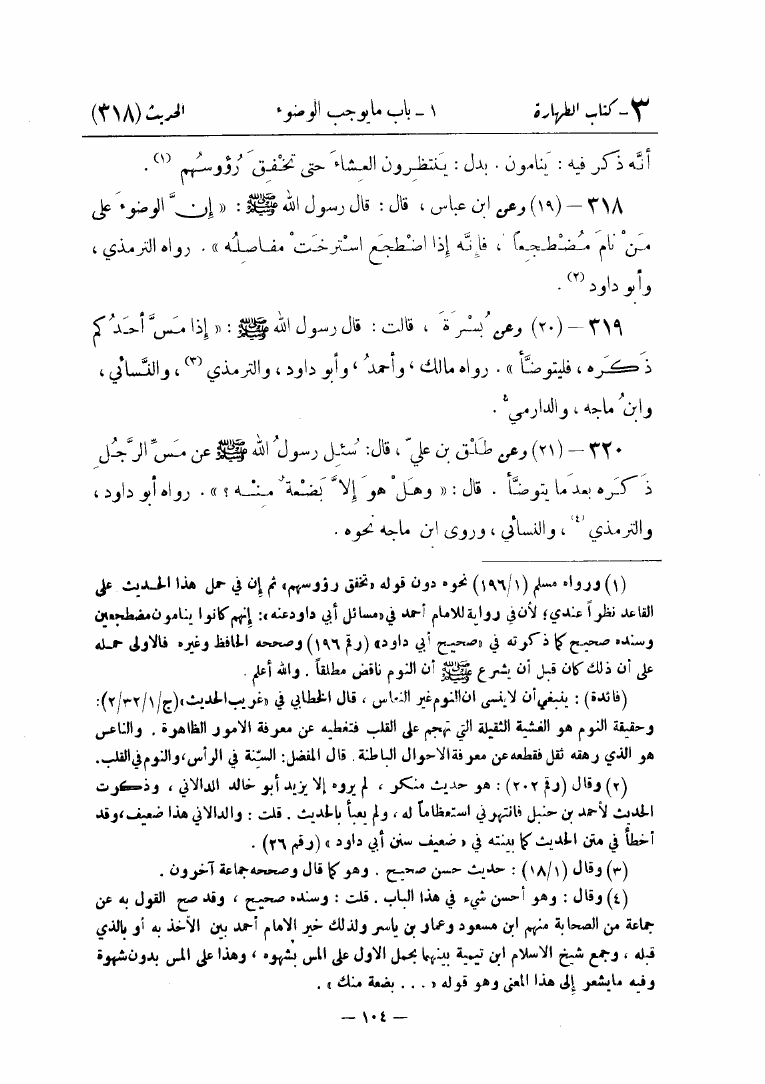 ٣ - كتاب الطهارة ١ - باب مايوجب الوضوء الحديث (٣١٨)
أنَّه ذكر فيه : يَنامون . بدل : يَنتظِرون العِشاءَ حتى تخْفِقَ رُؤوسُهم (١) .
٣١٨ - (١٩) وعن ابن عباس ، قال : قال رسول الله ﷺ : « إنَّ الوضوءَ على
مَنْ نامَ مُضْطجِعاً ، فإنَّه إذا اضْطجَع اسْترخَتْ مفاصِلُه » . رواه الترمذي ،
وأبو داود (٢) .
٣١٩ - (٢٠) وعن بُسْرَةَ ، قالت : قال رسول الله ﷺ : « إذا مَسَّ أحدُكم
ذَكَره ، فليتوضَّأ » . رواه مالك ، وأحمدُ ، وأبو داود ، والترمذي (٣) ، والنَّسائي ،
وابنُ ماجه ، والدارمي .
٣٢٠ - (٢١) وعن طَلْق بن عليّ ، قال: سُئِل رسولُ الله ﷺ عن مَسِّ الرَّجُلِ
ذَكَرَه بعدَما يتوضَّأ . قال : « وهَلْ هوَ إلاَّ بَضْعةٌ مِنْه ؟ » . رواه أبو داود ،
والترمذي (٤) ، والنسائي ، وروى ابن ماجه نحوه .
(١) ورواه مسلم (١/١٩٦) نحوه دون قوله «تخفق رؤوسهم» ثم إن في حمل هذا الحديث على
القاعد نظراً عندي؛ لأن في رواية للامام أحمد في «مسائل أبي داود عنه»: إنهم كانوا ينامون مضطجعين
وسنده صحيح كما ذكرته في «صحيح أبي داود» (رقم ١٩٦) وصححه الحافظ وغيره فالاولى حمله
على أن ذلك كان قبل أن يشرع ﷺ أن النوم ناقض مطلقاً . والله أعلم .
(فائدة) : ينبغي أن لاينسى ان النوم غير النعاس ، قال الخطابي في «غريب الحديث» (ج/١/٣٢/٢):
وحقيقة النوم هو الغشية الثقيلة التي تهجم على القلب فتغطيه عن معرفة الامور الظاهرة . والناعس
هو الذي رهقه ثقل فقطعه عن معرفة الاحوال الباطنة . قال المفضل: السِّنة في الرأس، والنوم في القلب.
(٢) وقال (رقم ٢٠٢) : هو حديث منكر ، لم يروه إلا يزيد أبو خالد الدالاني ، وذكرت
الحديث لأحمد بن حنبل فانتهرني استعظاماً له ، ولم يعبأ بالحديث . قلت : والدالاني هذا ضعيف، وقد
أخطأ في متن الحديث كما بينته في « ضعيف سنن أبي داود » (رقم ٢٦) .
(٣) وقال (١/١٨) : حديث حسن صحيح . وهو كما قال وصححه جماعة آخرون .
(٤) وقال : وهو أحسن شيء في هذا الباب . قلت : وسنده صحيح ، وقد صح القول به عن
جماعة من الصحابة منهم ابن مسعود وعمار بن ياسر ولذلك خير الامام أحمد بين الأخذ به أو بالذي
قبله ، وجمع شيخ الاسلام ابن تيمية بينهما بحمل الاول على المس بشهوه ، وهذا على المس بدون شهوة
وفيه مايشعر إلى هذا المعنى وهو قوله « . . . بضعة منك » .
— ١٠٤ —